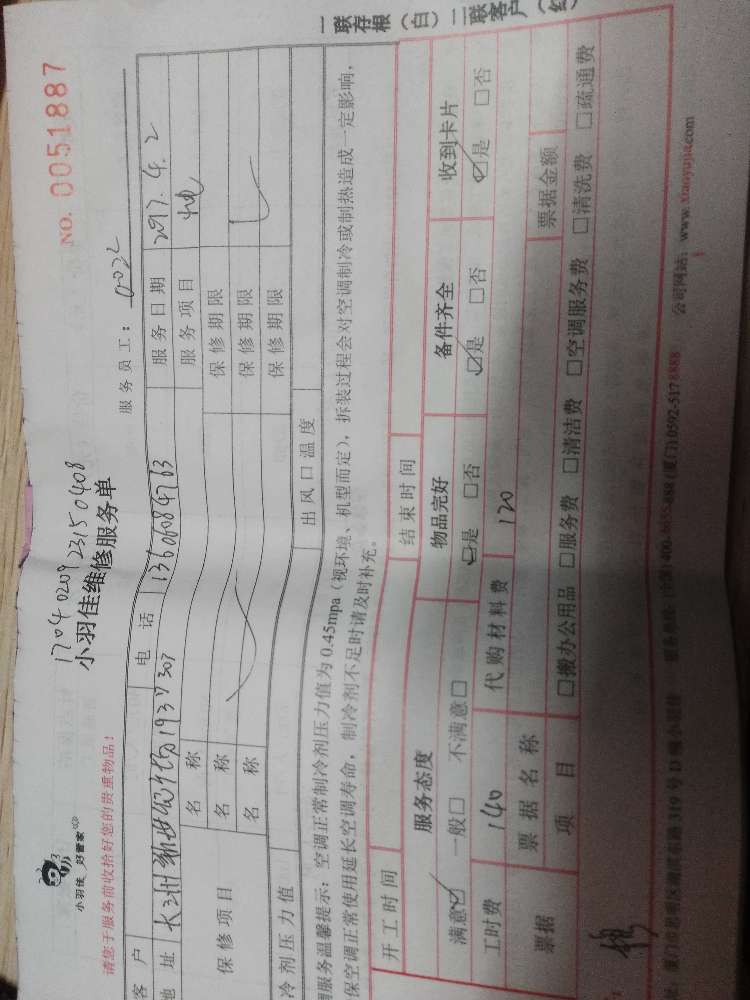 一联存根（白）二联客户（红）
NO. 0051887
小羽佳 好管家
1704020923150408
小羽佳维修服务单
请您于服务前收拾好您的贵重物品！
服务员工：0022
客户 电话 13606084763 服务日期 2017.4.2
地址 1937 307 服务项目
保修项目 名称 保修期限
名称 保修期限
名称 保修期限
冷剂压力值 出风口温度
调服务温馨提示：空调正常制冷剂压力值为 0.45mpa（视环境、机型而定），拆装过程会对空调制冷或制热造成一定影响，
保空调正常使用延长空调寿命，制冷剂不足时请及时补充。
开工时间 结束时间
服务态度 物品完好 备件齐全 收到卡片
满意☑ 一般□ 不满意□ ☑是 □否 ☑是 □否 ☑是 □否
工时费 140 代购材料费 120
票据 票据名称 票据金额
项目 □搬办公用品 □服务费 □清洁费 □空调服务费 □清洗费 □疏通费
319 号 (厦门)0592-5178888 公司网站：www.xiaoyujia.com